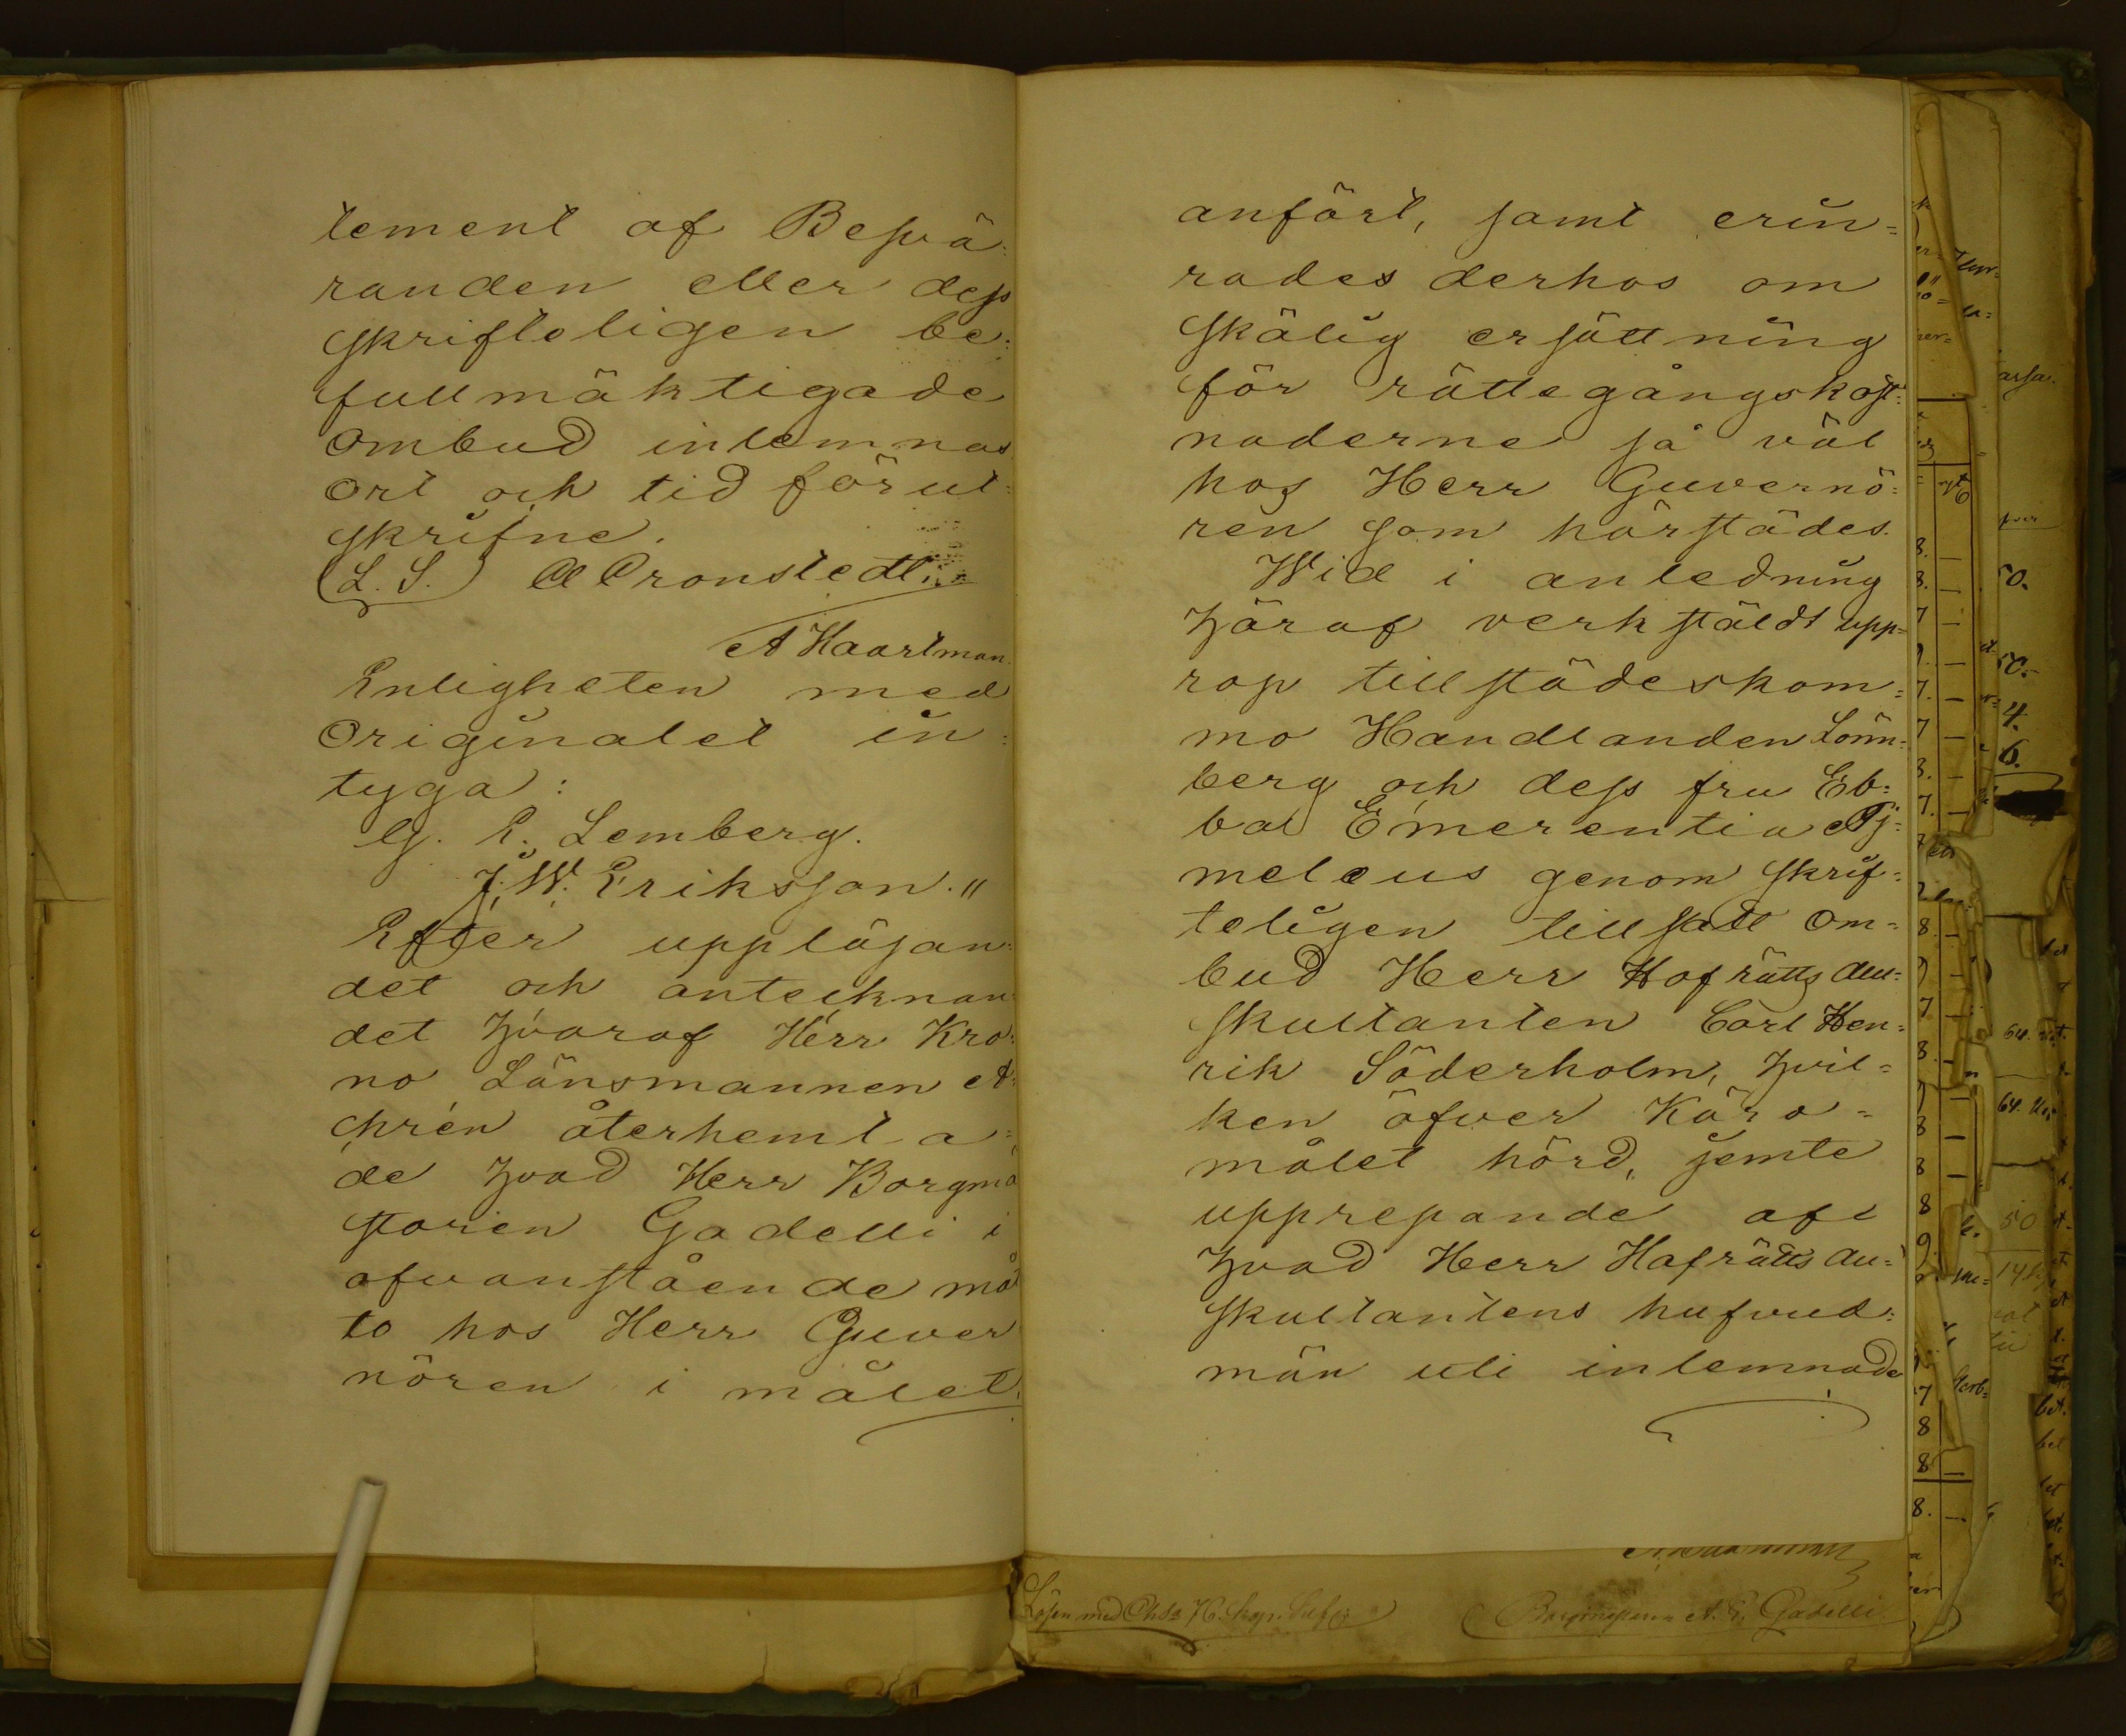 tement af Besvä=
randen eller dess
skrifteligen be=
fullmäktigade
ombud inlemnas
Ort och tid förut=
skrifne.
(L. S.) A Cronstedt.
A Haartman.
Enligheten med
Originalet in=
tyga:
G. E. Lemberg.
J. W. Eriksson."
Efter uppläsan=
det och antecknan=
det hvaraf Herr Kro=
no Länsmannen A=
chrén återhemta=
de hvad Herr Borgmä
staren Gadelli i
ofvanstående mål
to hos Herr Guver
nören i målet
anfört, samt erin=
rades derhos om
skälig ersättning
för rättegångskost=
naderne så väl
hos Herr Guvernö=
ren som härstädes.
Wid i anledning
häraf verkstäldt upp=
rop tillstädeskom=
mo Handlanden Lönn=
berg och dess fru Eb=
ba Emerentia Py=
meleus genom skrif=
teligen tillsatt om=
bud Herr Hofrätts Au=
skultanten Carl Hen=
rik Söderholm, hvil=
ken öfver Käro=
målet hörd, jemte
upprepande af
hvad Herr Hofrätts Au=
skultantens hufvud=
män uti inlemnade
Borgmästaren A. E. Gadelli